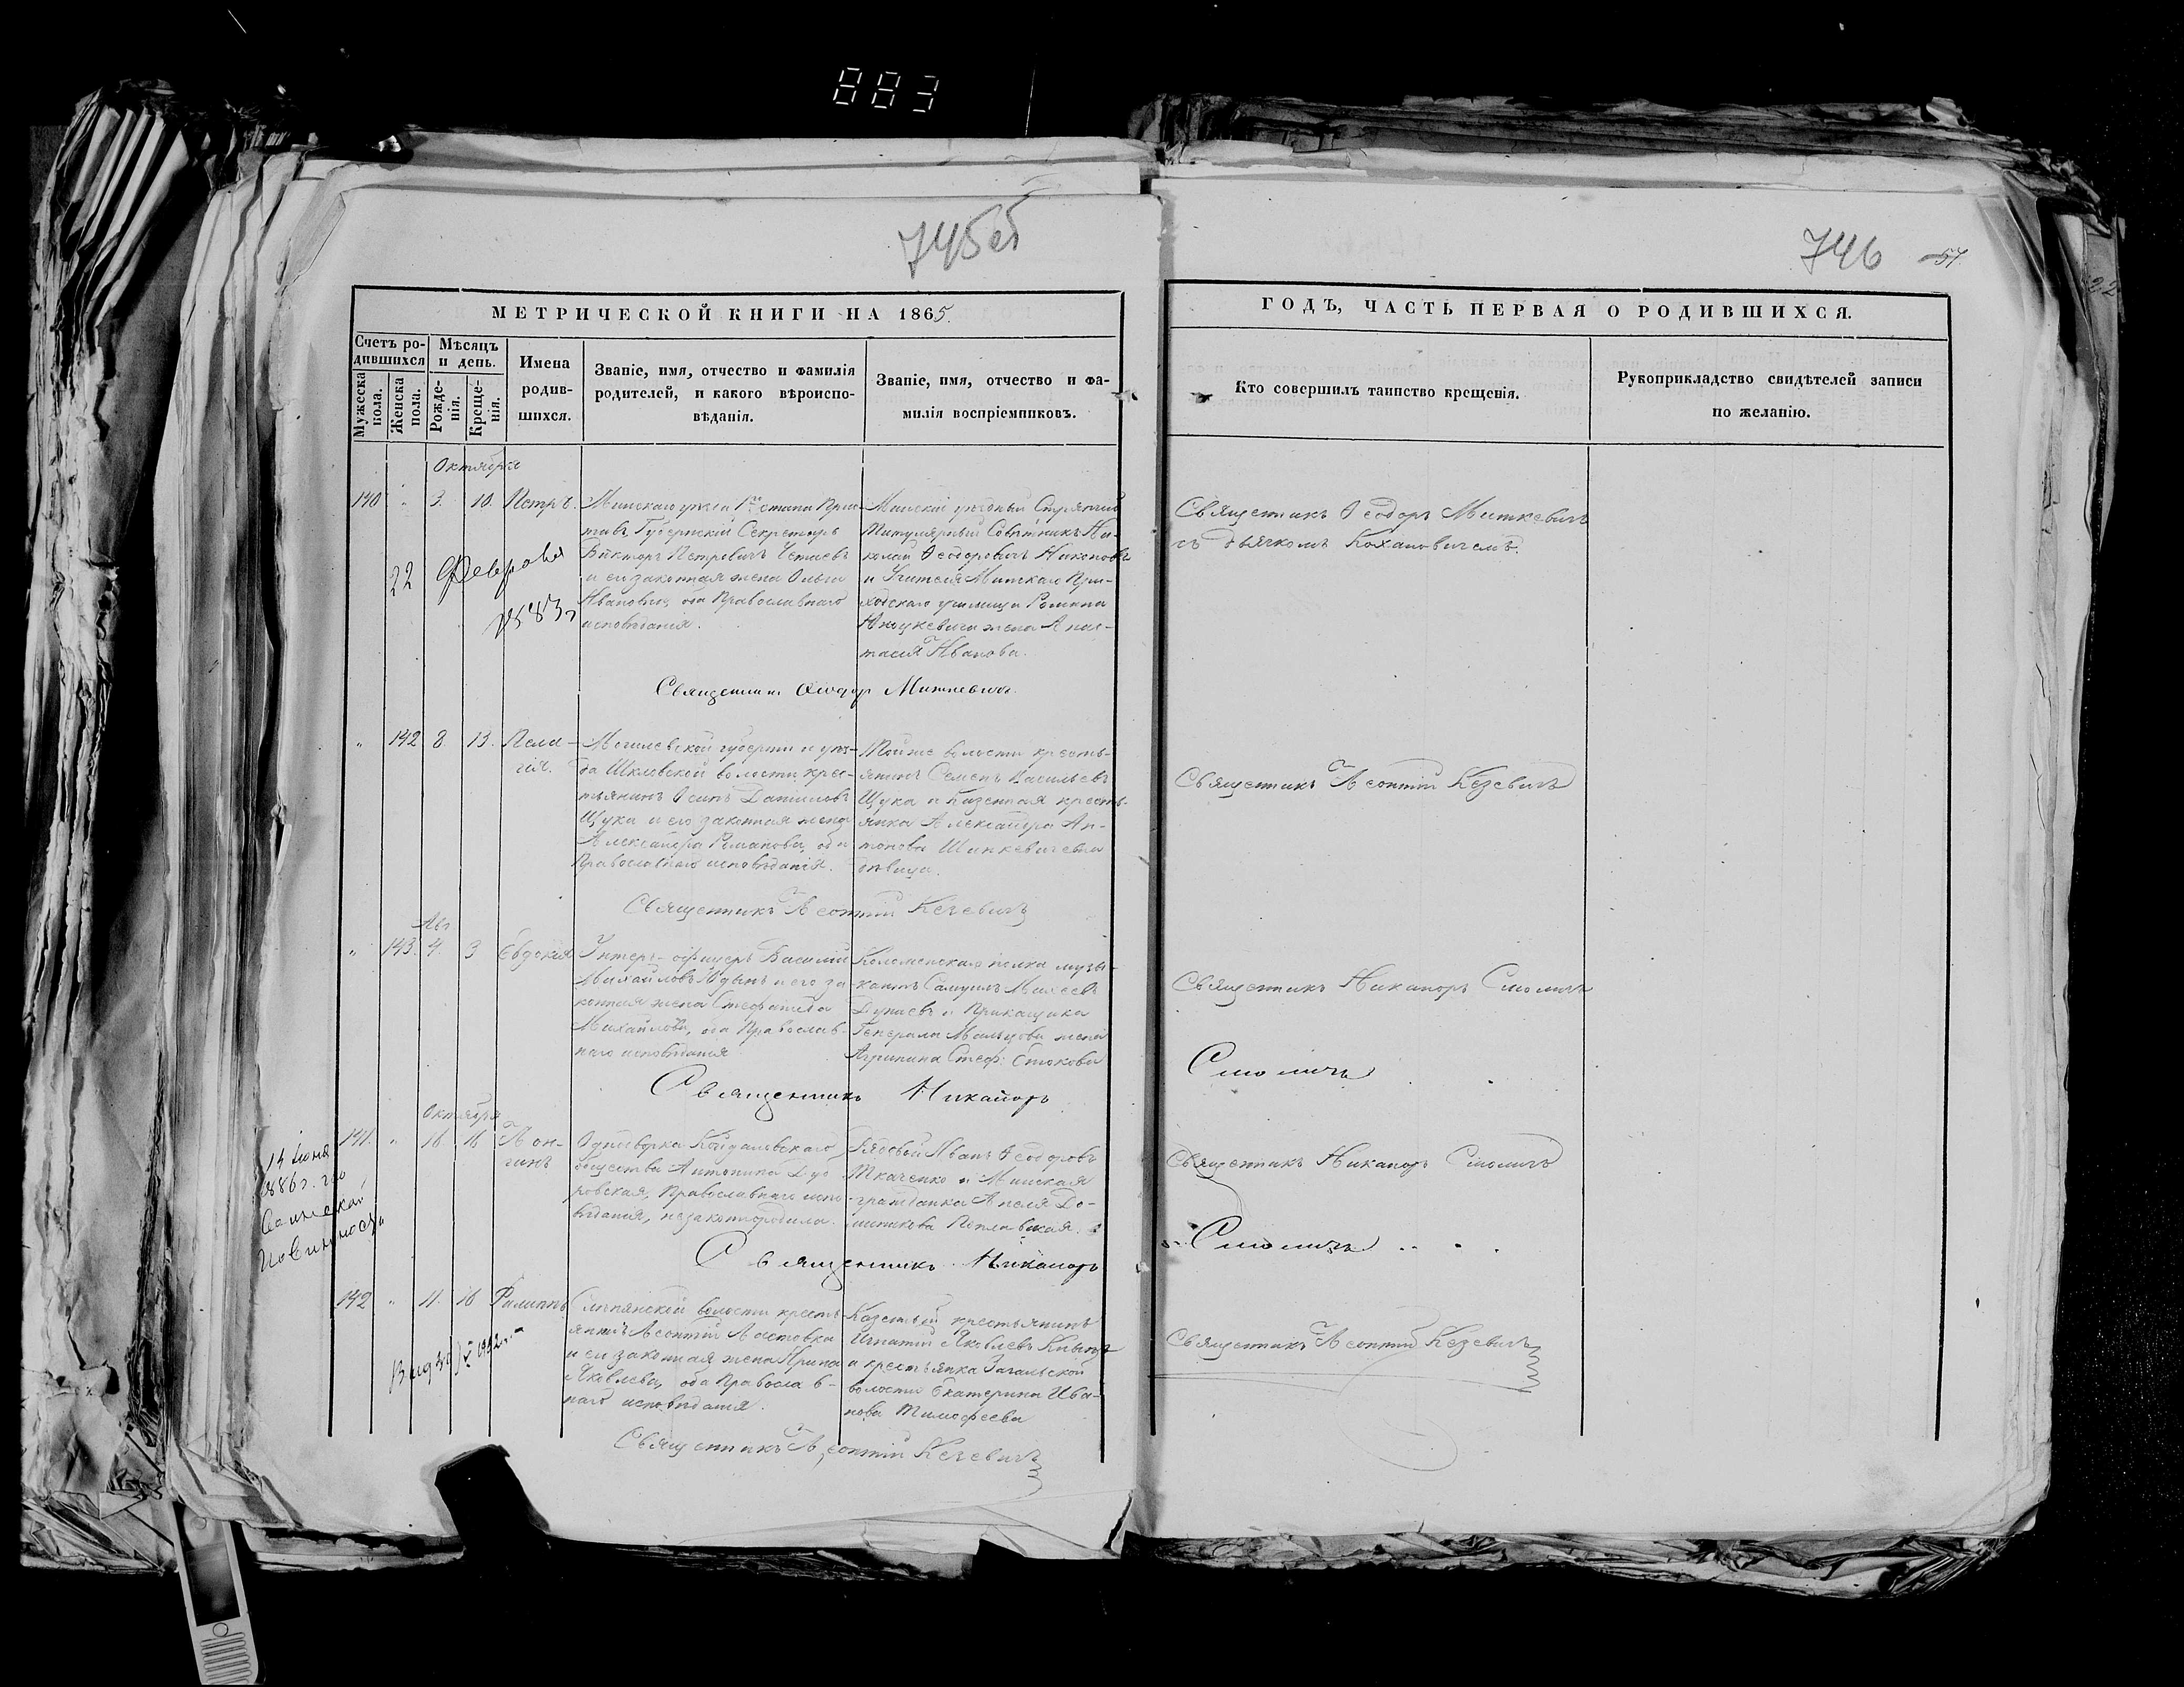 883
745об
746
57
МЕТРИЧЕСКОЙ КНИГИ НА 1865.
ГОДЪ, ЧАСТЬ ПЕРВАЯ О РОДИВШИХСЯ.
Счетъ родившихся
Мужеска пола.
Женска пола.
Мѣсяцъ и день.
Рожденія.
Крещенія.
Имена родившихся.
Званіе, имя, отчество и фамилія родителей, и какого вѣроисповѣданія.
Званіе, имя, отчество и фамилія воспріемниковъ.
Кто совершилъ таинство крещенія.
Рукоприкладство свидѣтелей записи по желанію.
Октября
140 " 3. 10. Петръ.
Минскаго уѣзда 1го стана Приставъ, Губернскій Секретарь
Викторъ Петровичъ
и его законная жена Ольга
Ивановна, оба Православнаго
исповѣданія.
Минскій уѣздный Стряпчій
Титулярный Совѣтникъ Николай Феодоровичъ
и Учителя Минскаго Приходскаго училища Романа
жена Анастасія Иванова.
Священникъ Феодоръ Миткевичъ
съ дьячкомъ Кохановичемъ.
22 Февраля
1883 г
Священникъ Феодоръ Миткевичъ.
" 142 8 13. Пелагія.
Могилевской губерніи и уѣзда Шкловской волости, крестьянинъ Осипъ Даниловъ
Щука и его законная жена
Александра Романова, оба
Православнаго исповѣданія.
Тойже волости крестьянинъ Семенъ Васильевъ
Щука и Казенная крестьянка Александра Антонова Шинкевичевна
дѣвица.
Священникъ Леонтій Кезевичъ
Священникъ Леонтій Кезевичъ
Авг
" 143. 4. 3 Евдокія
Унтеръ-офицеръ Василій
Михайловъ и его законная жена Стефанида
Михайлова, оба Православнаго исповѣданія
Коломенскаго полка музыкантъ Самуилъ Михеевъ
Дунаевъ и Прикащика
Генерала Мальцова жена
Агрипина Стеф:
Священникъ Никаноръ Смоличъ
Священникъ Никаноръ
Смоличъ
Октября
141. " 16 16 Лонгинъ
Однодворка Койдановскаго
общества Антонина
Православнаго исповѣданія, незаконнородила.
Рядовый Иванъ Феодоровъ
Ткаченко и Минская
гражданка Анеля Доминикова
Священникъ Никаноръ Смоличъ
14 Іюня
1886 г. по
Воинской
Повинности
Священникъ Никаноръ
Смоличъ
142 " 11. 16 Филиппъ
волости крестьянинъ Леонтій Ластовка
и его законная жена Ирина
Яковлева, оба Православнаго исповѣданія.
Казенный крестьянинъ
Игнатій Яковлевъ
и крестьянка
волости Екатерина Иванова Тимофеева
Священникъ Леонтій Кезевичъ
Священникъ Леонтій Кезевичъ